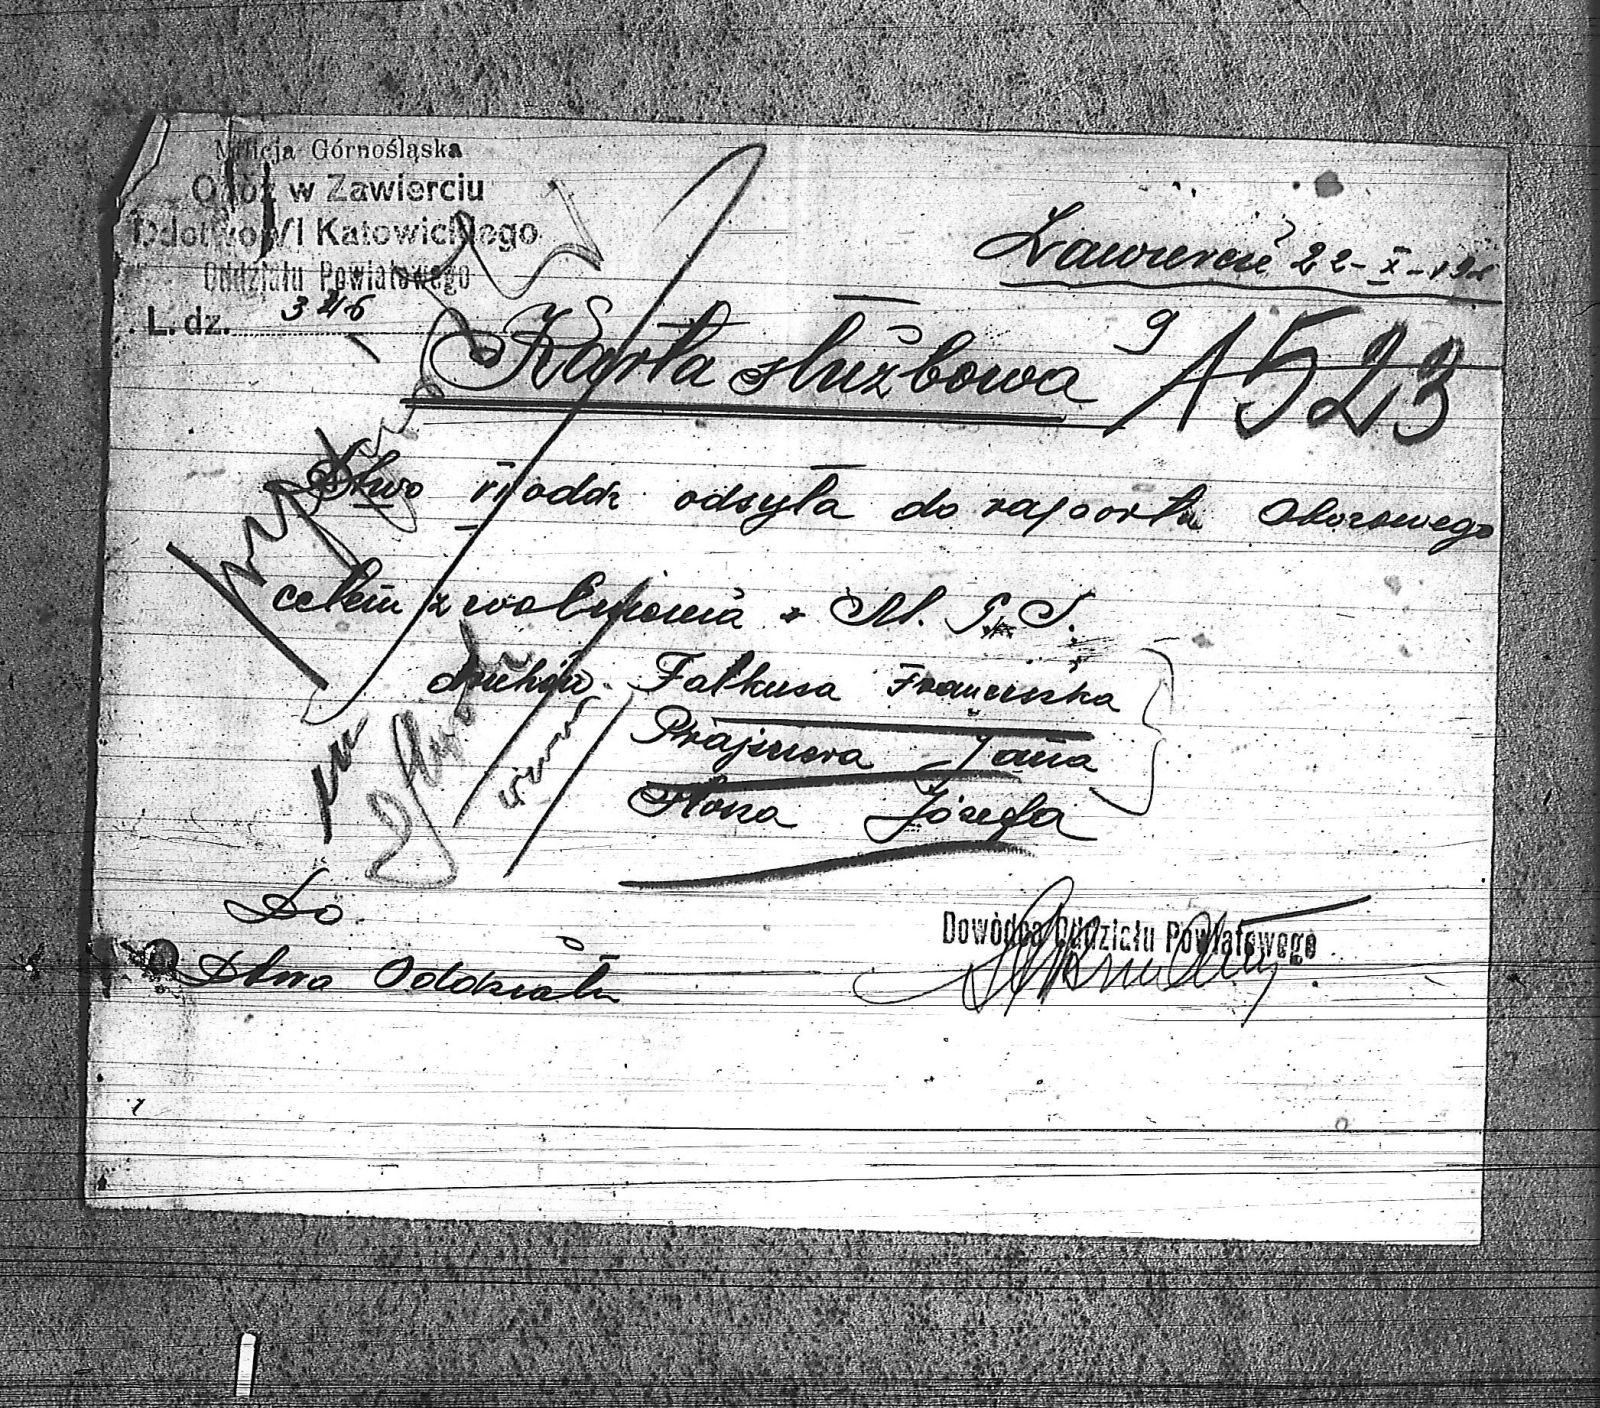 Milicja Górnośląska
Obóz w Zawierciu
Ddotwo VI Katowickiego
Oddziału Powiatowego
L. dz. 346
Zawiercie 22-X-19
Karta służbowa
9
1523
Dtwo VI oddz odsyła do raportu Obozowego
celem zwolnienia z M. G. S.
druhów. Falkusa Franciszka
Jana
Józefa
Do
Dtwa Oddziału
Dowódca Oddziału Powiatowego